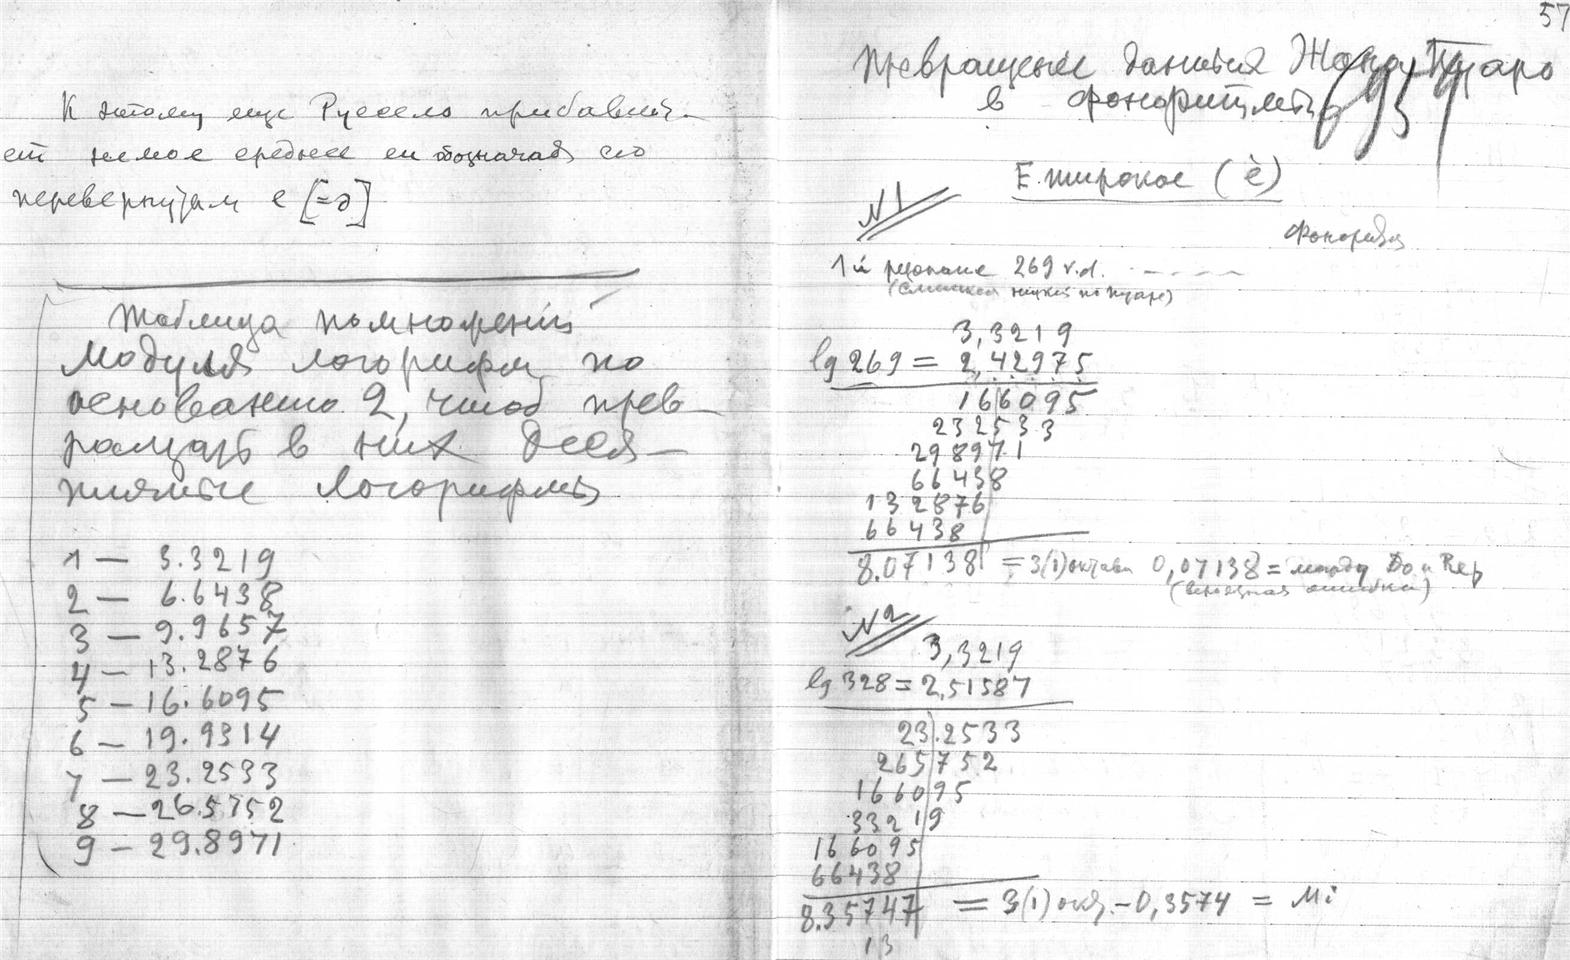 К этому еще Русселo прибавля-
ет немое среднее
перевернутым е [=ə]
Таблица помножений
модуля логорифм по
основанию 2, чтоб прев-
ращать в них деся-
тичные логорифмы
1 — 3.3219
2 — 6.6438
3 — 9.9657
4 — 13.2876
5 — 16.6095
6 — 19.9314
7 — 23.2533
8 — 26.5752
9 — 29.8971
57
Превращение данных Жана Пуаро
в фоноритмы
Е широкое (è)
N1
1й резонанс 269 v.d.
3,3219
lg 269 = 2,42975
166095
232533
298971
66438
132876
66438
8.07138 = 3(1) октава 0,07138 = между Do и Re♭
N2
3,3219
lg 328 = 2,51587
23.2533
265752
166095
33219
166095
66438
8.35747 = 3(1) окт. - 0,3574 = Mi
13